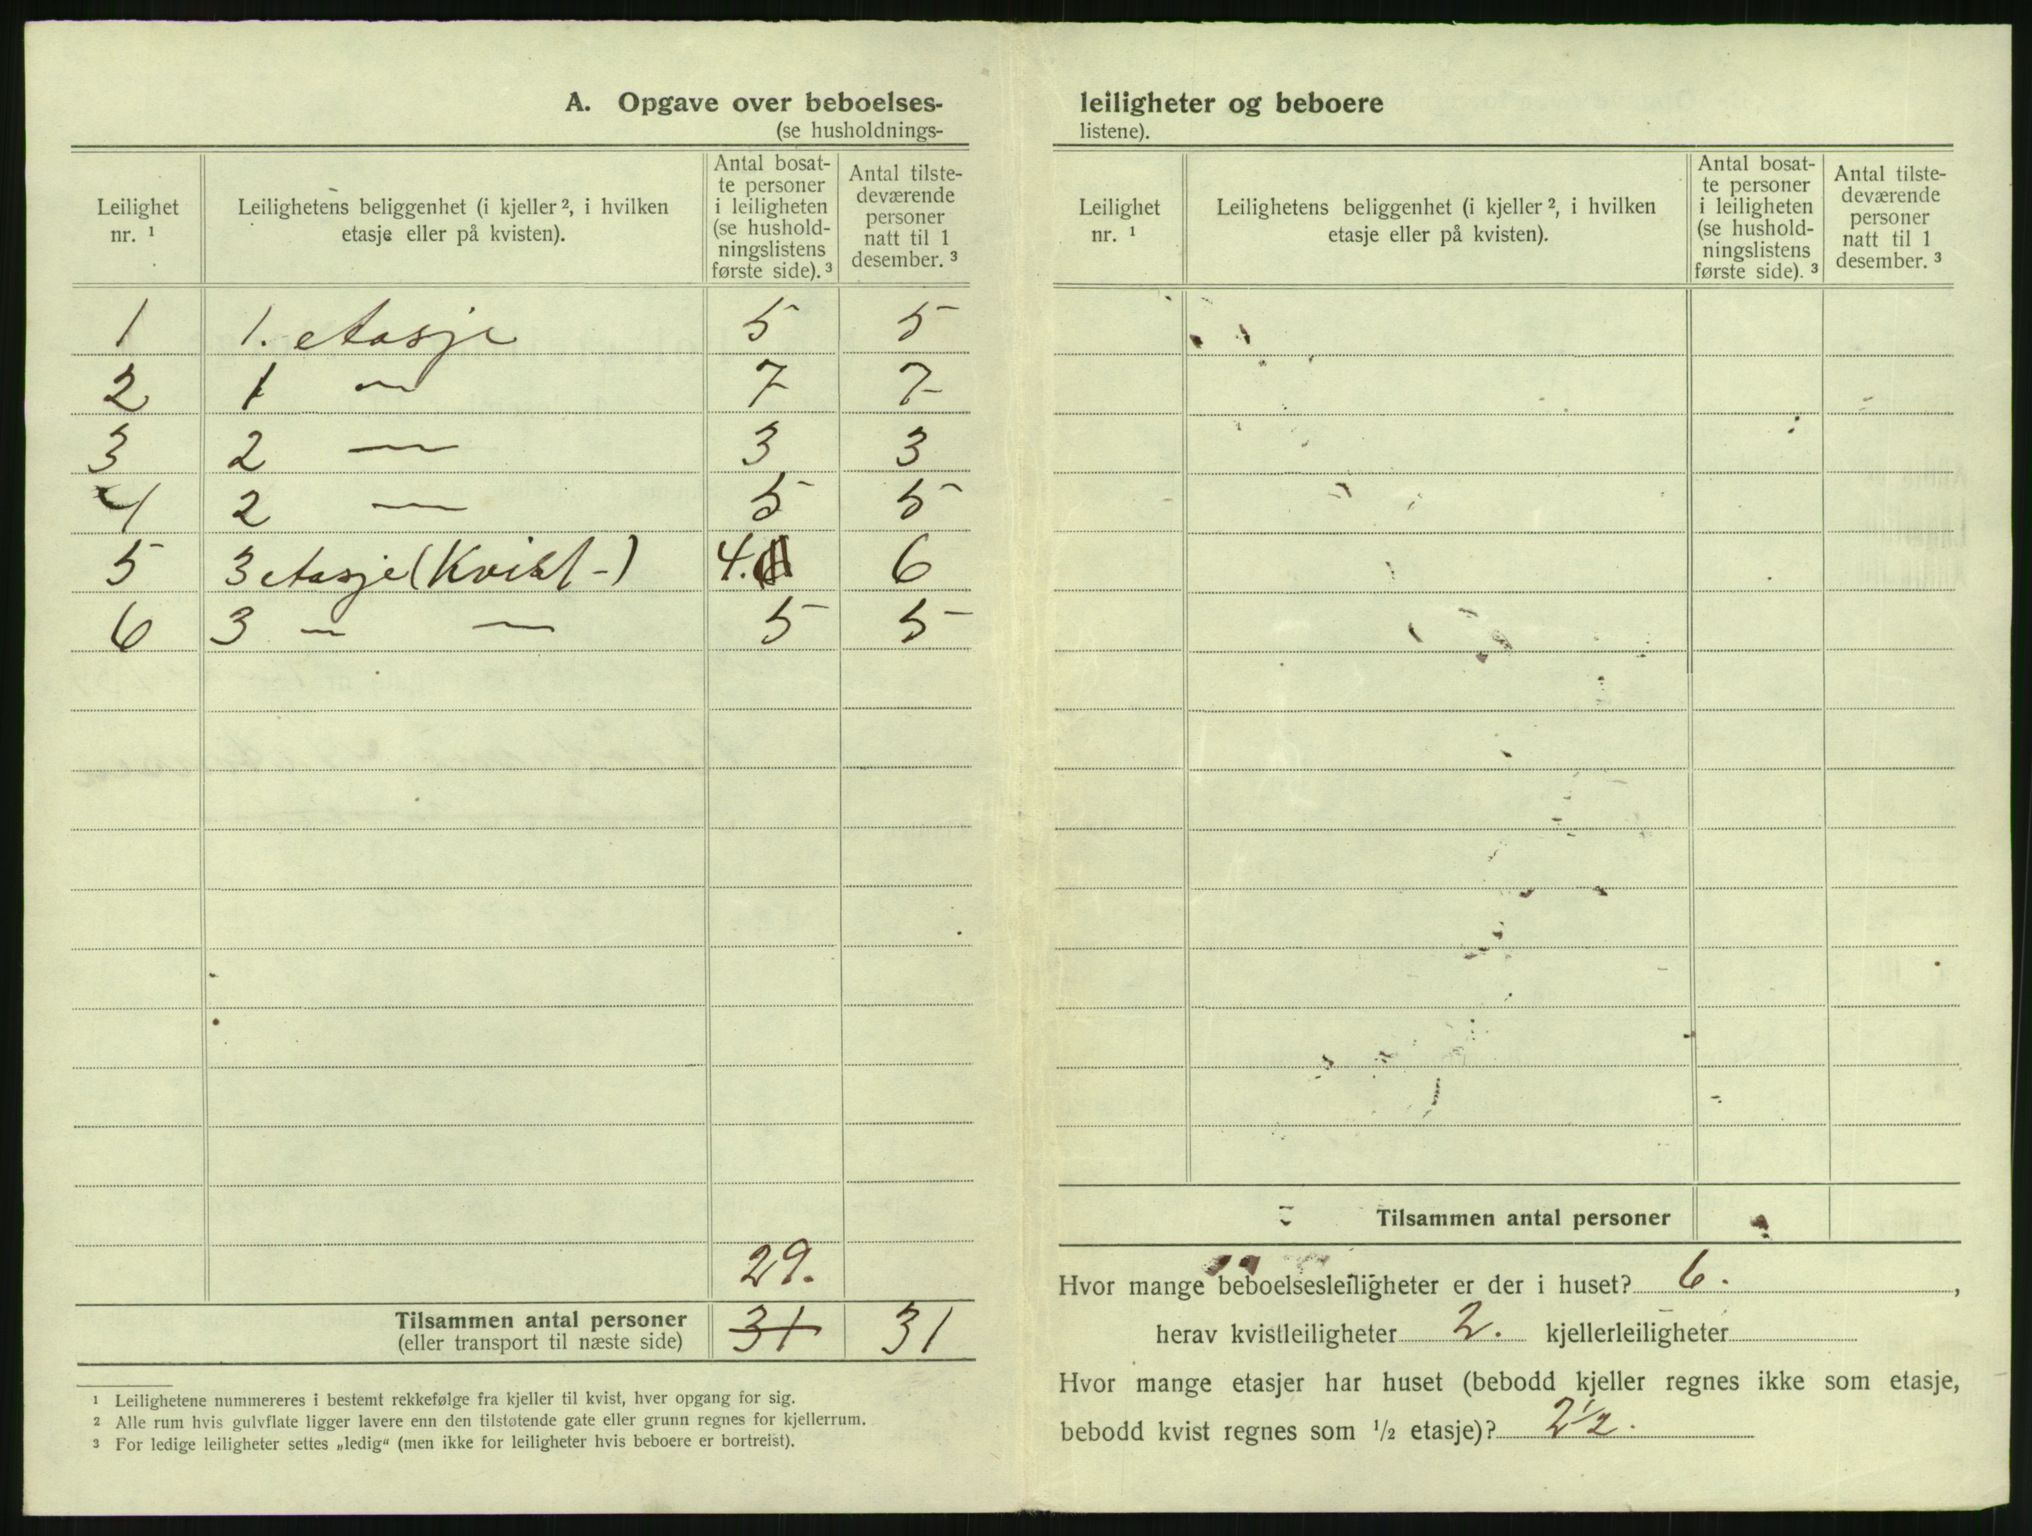 A. Opgave over beboelses-
(se husholdnings-
Leilighet nr. ¹
Leilighetens beliggenhet (i kjeller ², i hvilken etasje eller på kvisten).
Antal bosat-
te personer
i leiligheten
(se hushold-
ningslistens
første side). ³
Antal tilste-
deværende
personer
natt til 1
desember. ³
1 1. etasje 5 5
2 1 — 7 7
3 2 — 3 3
4 2 — 5 5
5 3 etasje (Kvist-) 4. 6
6 3 — — 5 5
29.
Tilsammen antal personer 31 31
(eller transport til næste side)
¹ Leilighetene nummereres i bestemt rekkefølge fra kjeller til kvist, hver opgang for sig.
² Alle rum hvis gulvflate ligger lavere enn den tilstøtende gate eller grunn regnes for kjellerrum.
³ For ledige leiligheter settes „ledig“ (men ikke for leiligheter hvis beboere er bortreist).
leiligheter og beboere
listene).
Leilighet nr. ¹
Leilighetens beliggenhet (i kjeller ², i hvilken etasje eller på kvisten).
Antal bosat-
te personer
i leiligheten
(se hushold-
ningslistens
første side). ³
Antal tilste-
deværende
personer
natt til 1
desember. ³
Tilsammen antal personer
Hvor mange beboelsesleiligheter er der i huset? 6. ,
herav kvistleiligheter 2. kjellerleiligheter
Hvor mange etasjer har huset (bebodd kjeller regnes ikke som etasje,
bebodd kvist regnes som ½ etasje)? 2½.